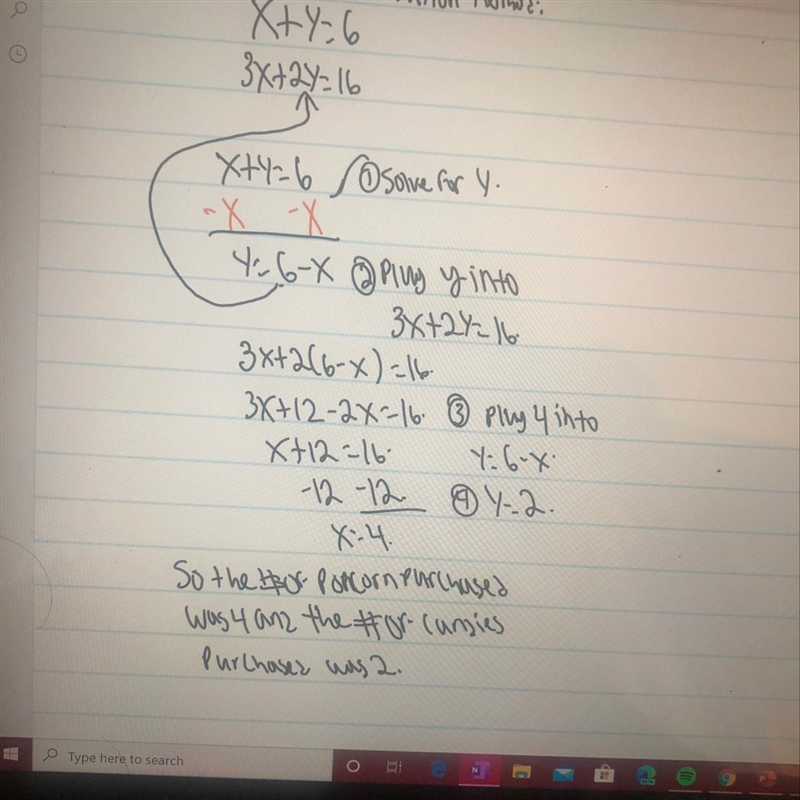 x+y=6
3x+2y=16
x+y=6 ① Solve for y.
-x -x
y=6-x ② Plug y into
3x+2y=16.
3x+2(6-x)=16.
3x+12-2x=16. ③ plug 4 into
x+12=16. y=6-x.
-12 -12 ④ y=2.
x=4.
So the # of Popcorn purchased
was 4 and the # of candies
purchased was 2.
Type here to search